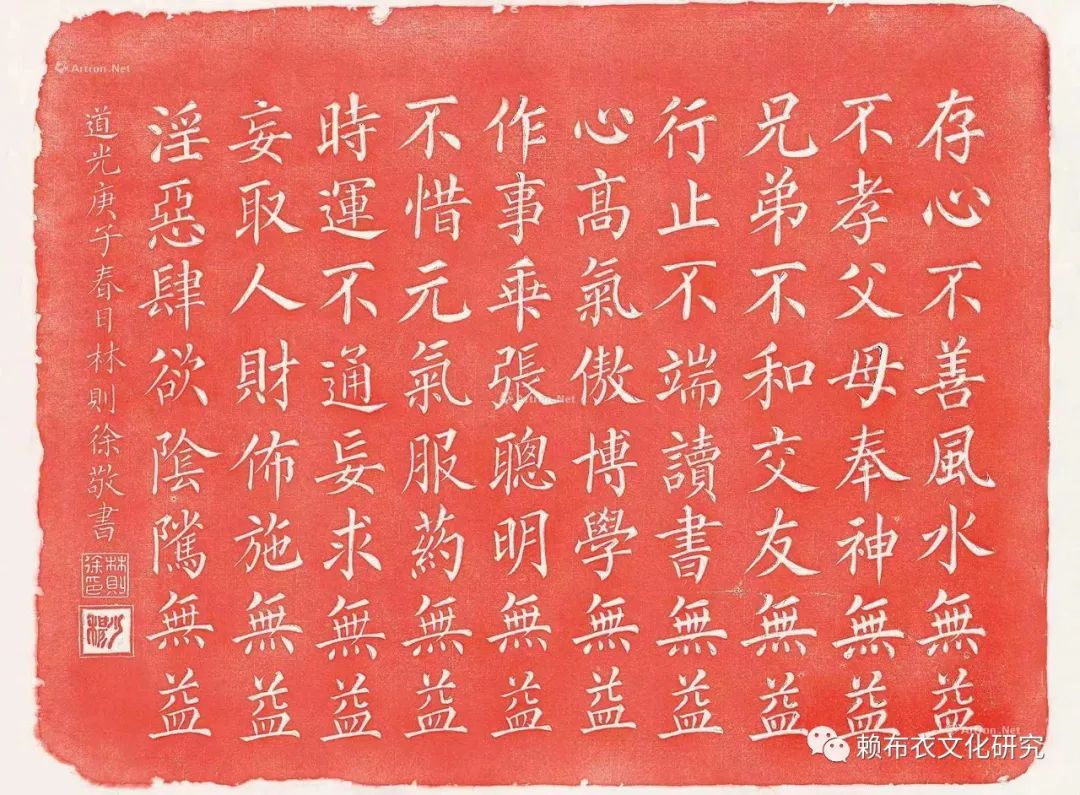 存心不善風水無益
不孝父母奉神無益
兄弟不和交友無益
行止不端讀書無益
心髙氣傲博學無益
作事乖張聰明無益
不惜元氣服藥無益
時運不通妄求無益
妄取人財佈施無益
淫惡肆欲陰騭無益
道光庚子春日林則徐敬書
林則徐印
少穆
Artron.Net
Artron.Net
Artron.Net
赖布衣文化研究